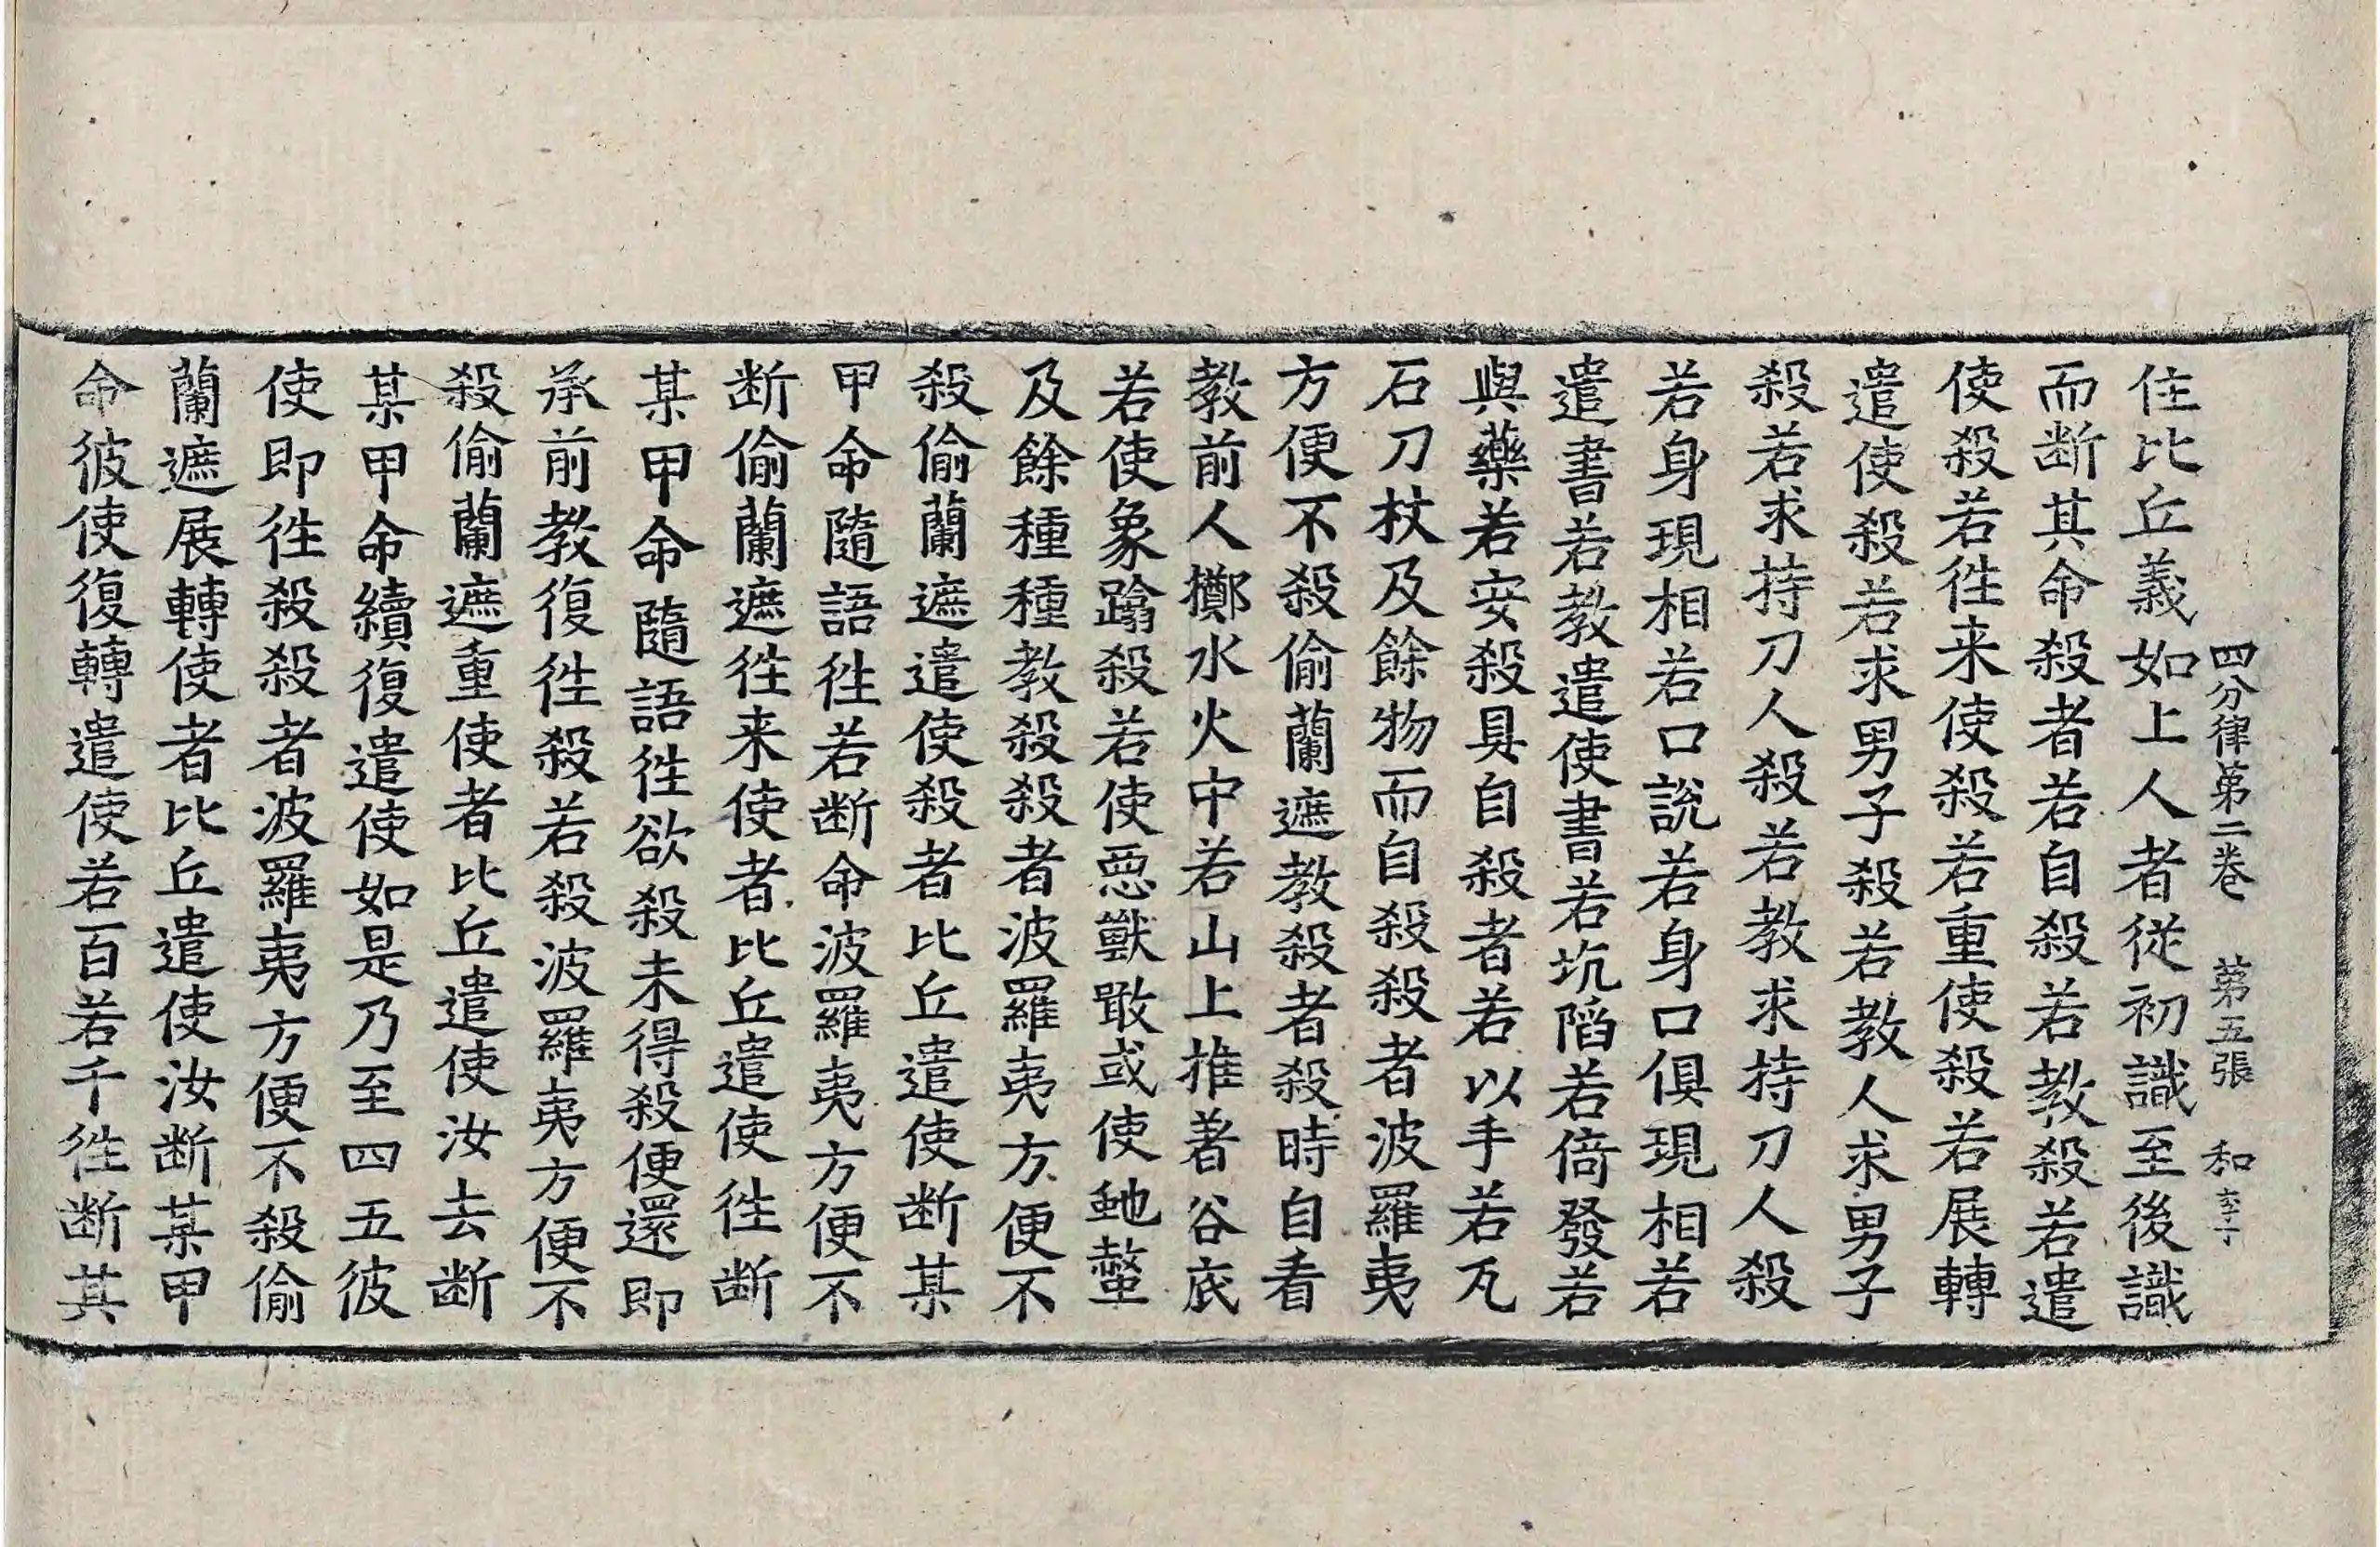 四分律第二卷 第五張 和 李子
住比丘義如上人者從初識至後識
而断其命殺者若自殺若教殺若遣
使殺若徃来使殺若重使殺若展轉
遣使殺若求男子殺若教人求男子
殺若求持刀人殺若教求持刀人殺
若身現相若口說若身口俱現相若
遣書若教遣使書若坑陷若倚發若
與藥若安殺具自殺者若以手若瓦
石刀杖及餘物而自殺殺者波羅夷
方便不殺偷蘭遮教殺者殺時自看
教前人擲水火中若山上推著谷底
若使象蹹殺若使惡獸噉或使虵螫
及餘種種教殺殺者波羅夷方便不
殺偷蘭遮遣使殺者比丘遣使断某
甲命隨語徃若断命波羅夷方便不
断偷蘭遮徃来使者比丘遣使徃断
某甲命隨語徃欲殺未得殺便還即
承前教復徃殺若殺波羅夷方便不
殺偷蘭遮重使者比丘遣使汝去断
某甲命續復遣使如是乃至四五彼
使即徃殺殺者波羅夷方便不殺偷
蘭遮展轉使者比丘遣使汝断某甲
命彼使復轉遣使若百若千徃断其